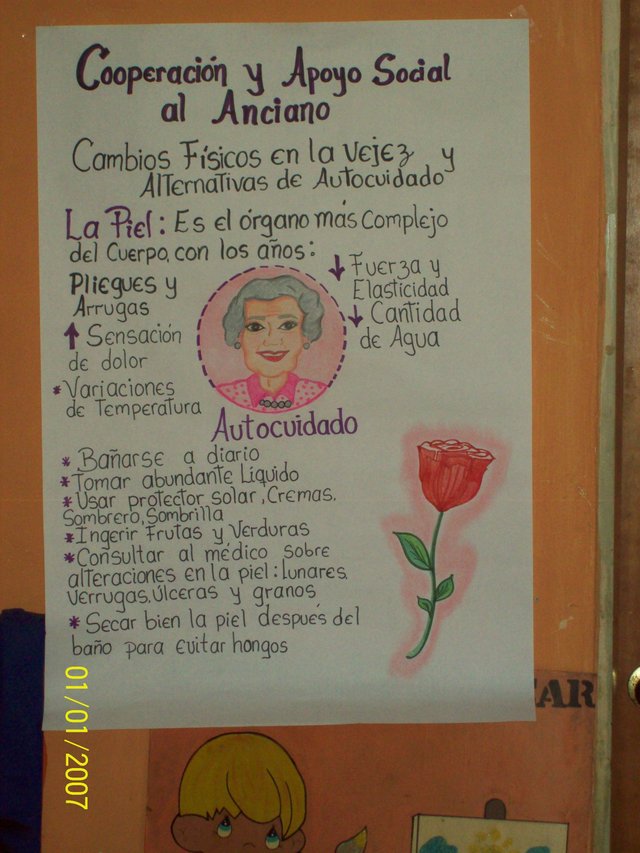 Cooperación y Apoyo Social
al Anciano
Cambios Físicos en la vejez y
Alternativas de Autocuidado
La Piel: Es el órgano más complejo
del Cuerpo, con los años:
Pliegues y
Arrugas
↑ Sensación
de dolor
* Variaciones
de Temperatura
↓ Fuerza y
Elasticidad
↓ Cantidad
de Agua
Autocuidado
* Bañarse a diario
* Tomar abundante Liquido
* Usar protector solar, Cremas.
Sombrero, Sombrilla
* Ingerir Frutas y Verduras
* Consultar al médico sobre
alteraciones en la piel: lunares.
verrugas, úlceras y granos
* Secar bien la piel después del
baño para evitar hongos
AR
01/01/2007